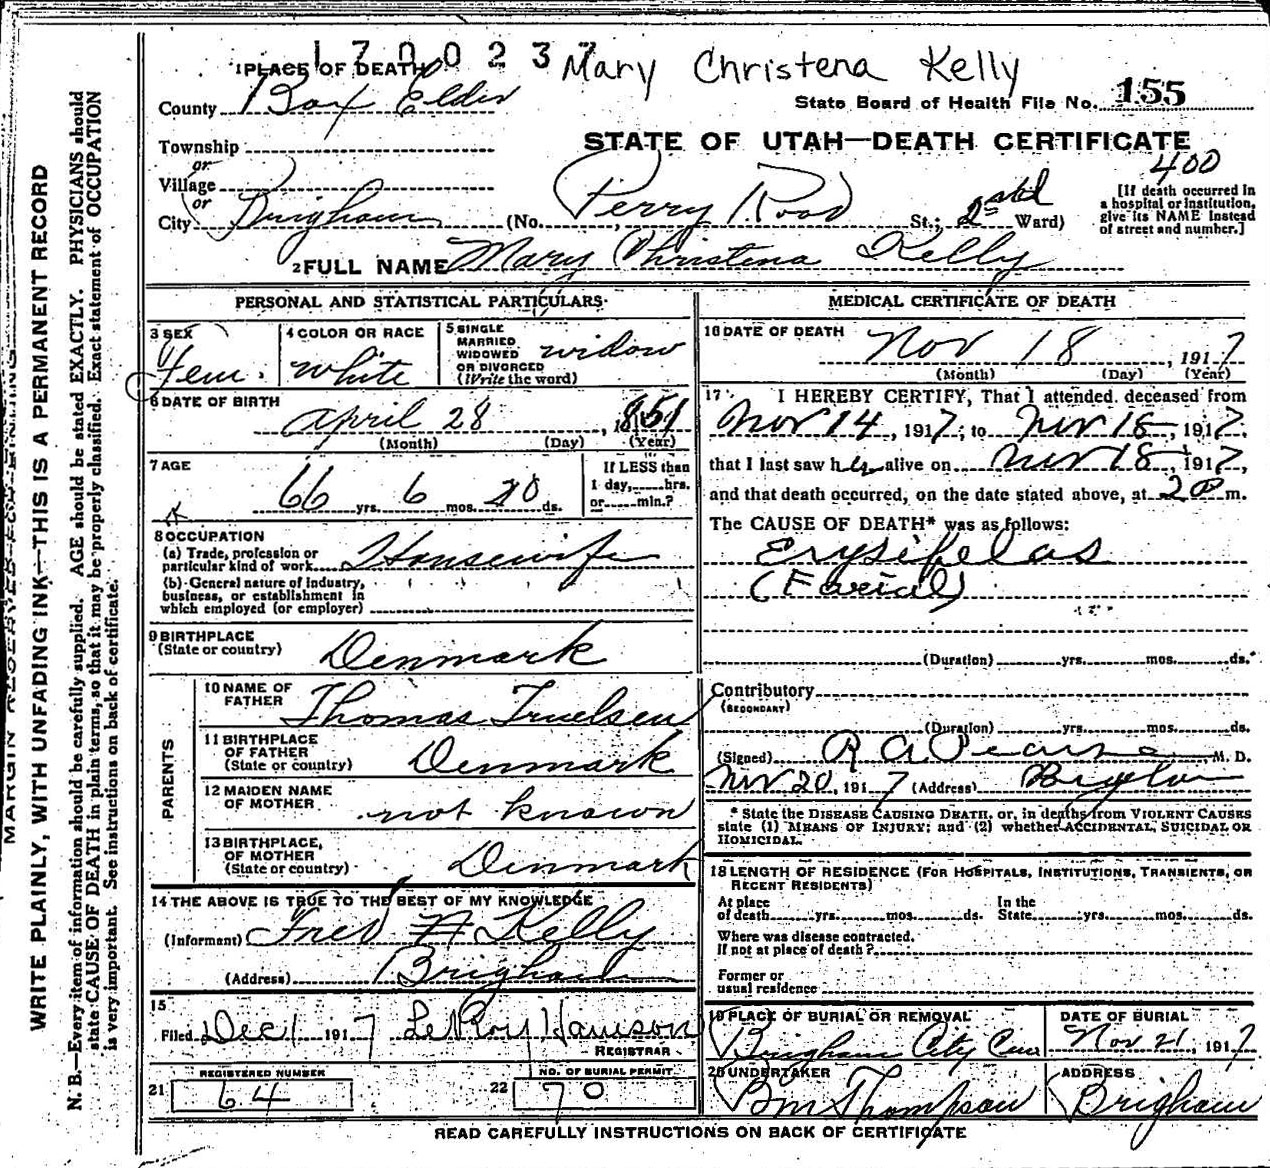 1700237 Mary Christena Kelly
1 PLACE OF DEATH
County Box Elder
State Board of Health File No. 155
Township
or
Village
or
City Brigham
STATE OF UTAH—DEATH CERTIFICATE
400
(No. Perry Road St.; 2nd Ward)
[If death occurred in a hospital or institution, give its NAME instead of street and number.]
2 FULL NAME Mary Christena Kelly
PERSONAL AND STATISTICAL PARTICULARS
3 SEX
Fem.
4 COLOR OR RACE
white
5 SINGLE
MARRIED
WIDOWED
OR DIVORCED
(Write the word)
widow
6 DATE OF BIRTH
April 28, 1851
(Month) (Day) (Year)
7 AGE
66 yrs. 6 mos. 20 ds.
If LESS than
1 day,......hrs.
or......min.?
8 OCCUPATION
(a) Trade, profession or
particular kind of work Housewife
(b) General nature of industry,
business, or establishment in
which employed (or employer)
9 BIRTHPLACE
(State or country) Denmark
PARENTS
10 NAME OF
FATHER Thomas Truelsen
11 BIRTHPLACE
OF FATHER
(State or country) Denmark
12 MAIDEN NAME
OF MOTHER not known
13 BIRTHPLACE,
OF MOTHER
(State or country) Denmark
14 THE ABOVE IS TRUE TO THE BEST OF MY KNOWLEDGE
(Informant) Fred H Kelly
(Address) Brigham
15
Filed Dec 1 1917 LeRoy Hanson
REGISTRAR
REGISTERED NUMBER
21 64
NO. OF BURIAL PERMIT
22 70
MEDICAL CERTIFICATE OF DEATH
16 DATE OF DEATH
Nov 18, 1917
(Month) (Day) (Year)
17 I HEREBY CERTIFY, That I attended deceased from
Nov 14, 1917, to Nov 18, 1917,
that I last saw her alive on Nov 18, 1917,
and that death occurred, on the date stated above, at m.
The CAUSE OF DEATH* was as follows:
Erysipelas
(Facial)
(Duration) yrs. mos. ds.
Contributory
(SECONDARY)
(Duration) yrs. mos. ds.
(Signed) R A Pearse M. D.
Nov 20, 1917 (Address) Brigham
* State the DISEASE CAUSING DEATH, or, in deaths from VIOLENT CAUSES
state (1) MEANS OF INJURY; and (2) whether ACCIDENTAL, SUICIDAL OR
HOMICIDAL.
18 LENGTH OF RESIDENCE (FOR HOSPITALS, INSTITUTIONS, TRANSIENTS, OR
RECENT RESIDENTS)
At place
of death yrs. mos. ds.
In the
State yrs. mos. ds.
Where was disease contracted,
If not at place of death?
Former or
usual residence
19 PLACE OF BURIAL OR REMOVAL
Brigham City Cem
DATE OF BURIAL
Nov 21, 1917
20 UNDERTAKER
Thompson
ADDRESS
Brigham
READ CAREFULLY INSTRUCTIONS ON BACK OF CERTIFICATE
MARGIN RESERVED FOR BINDING
WRITE PLAINLY, WITH UNFADING INK—THIS IS A PERMANENT RECORD
N. B.—Every item of information should be carefully supplied. AGE should be stated EXACTLY. PHYSICIANS should
state CAUSE OF DEATH in plain terms, so that it may be properly classified. Exact statement of OCCUPATION
is very important. See instructions on back of certificate.